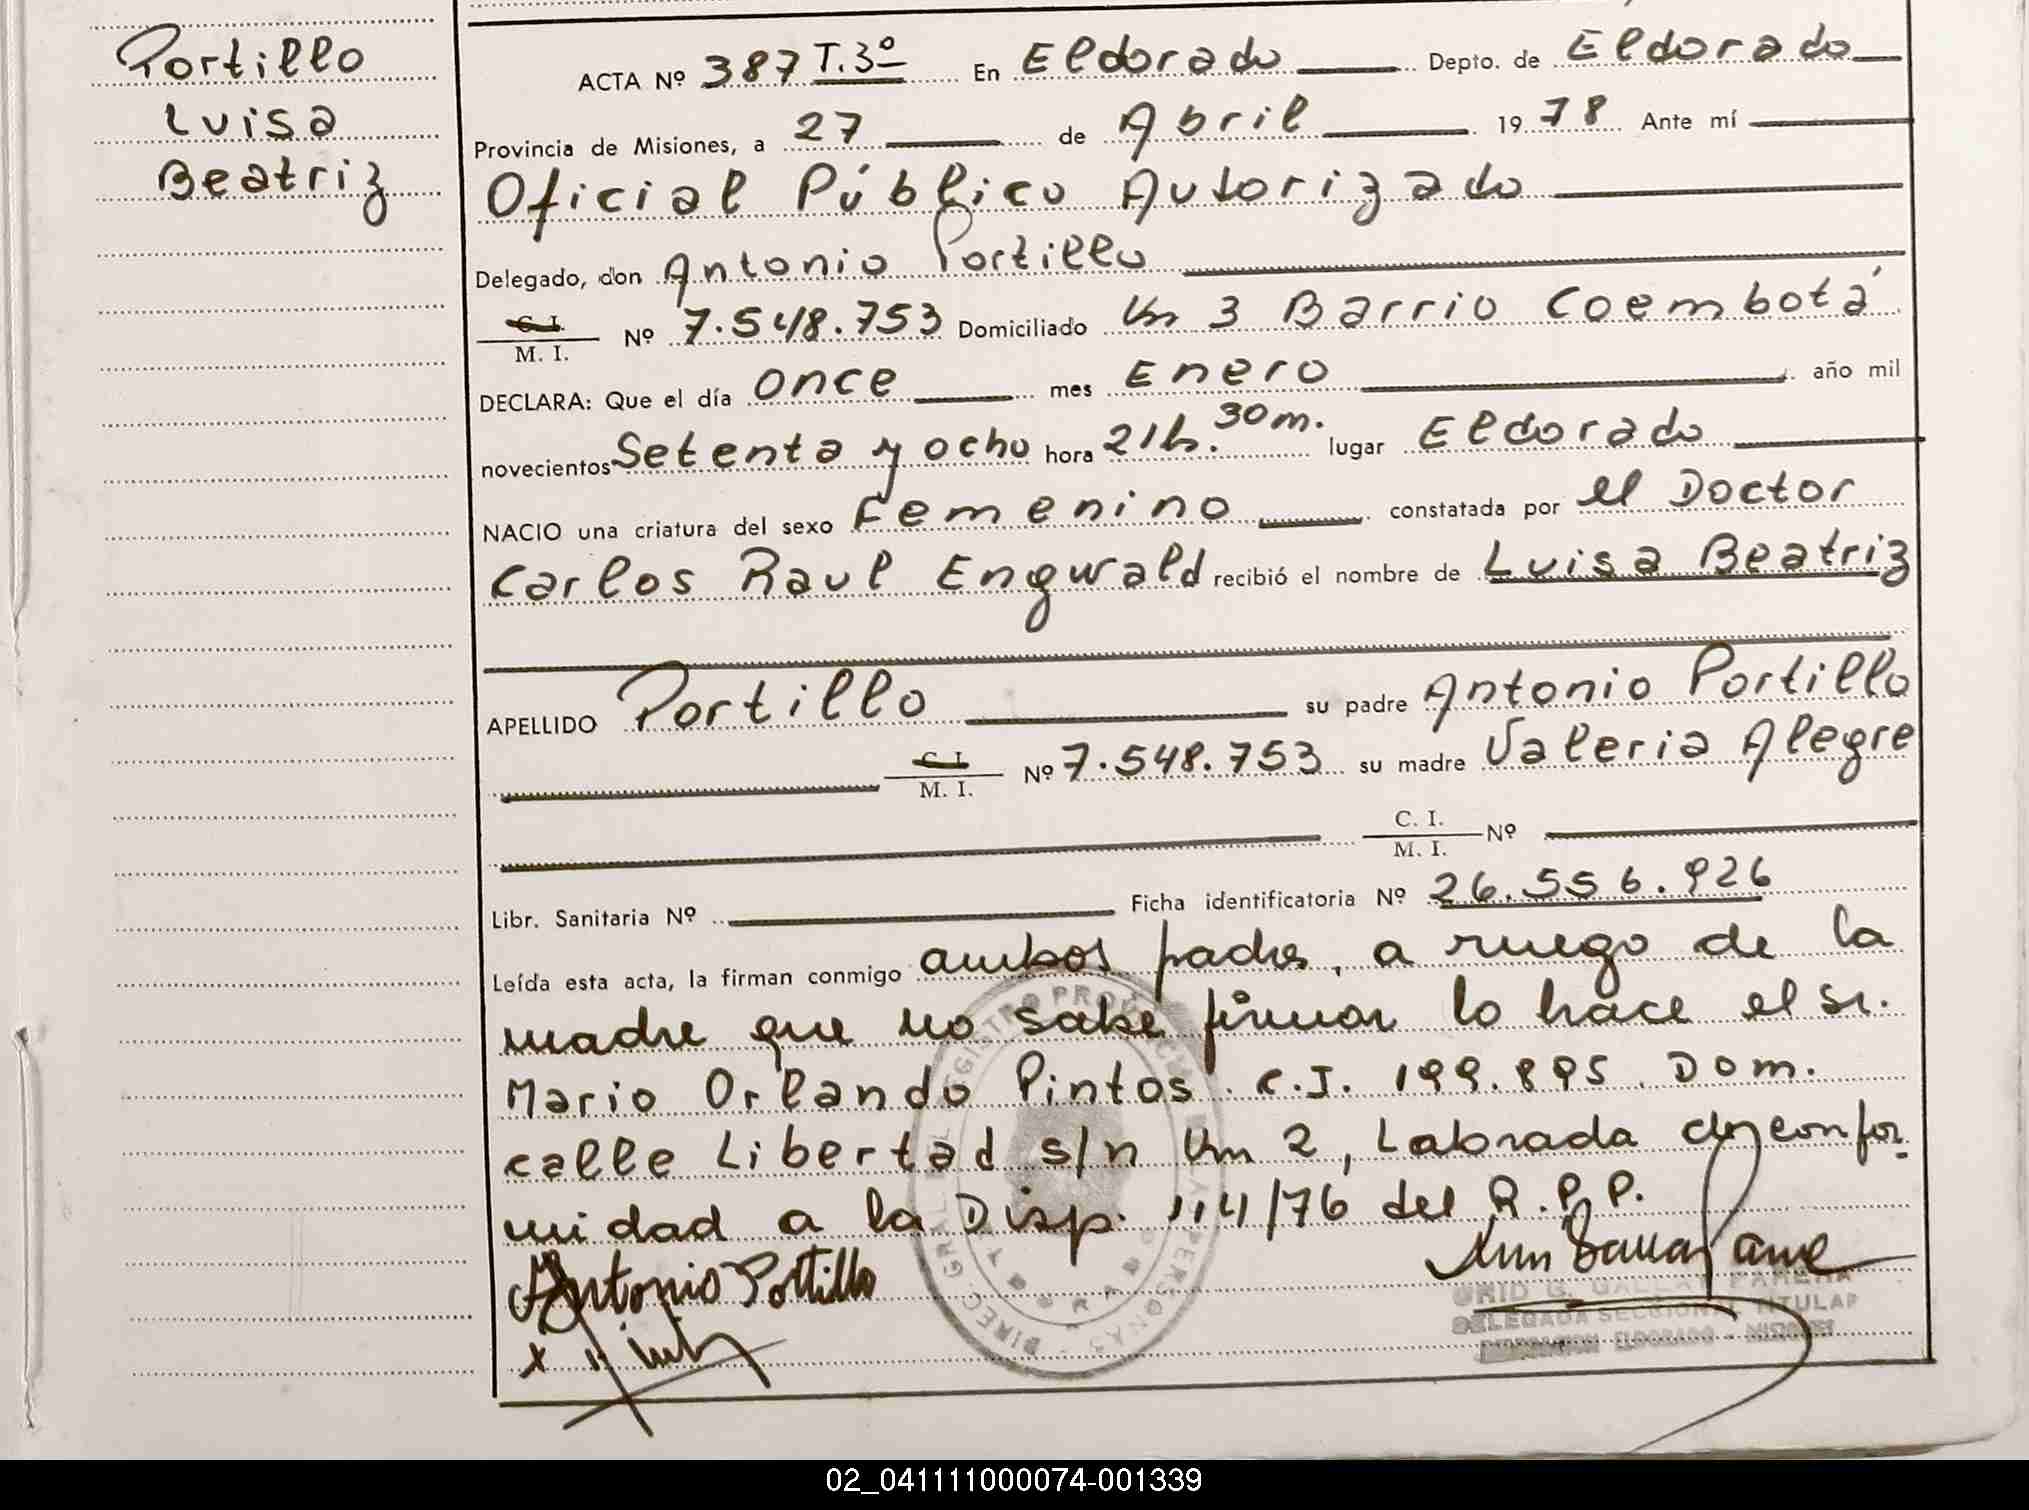 Portillo
Luisa
Beatriz
ACTA Nº 387 T.3º En Eldorado Depto. de Eldorado
Provincia de Misiones, a 27 de Abril 1978 Ante mí
Oficial Público Autorizado
Delegado, don Antonio Portillo
C. I.
M. I. Nº 7.548.753 Domiciliado Km 3 Barrio Coembotá
DECLARA: Que el día once mes Enero año mil
novecientos Setenta y ocho hora 21h.30m. lugar Eldorado
NACIO una criatura del sexo Femenino constatada por el Doctor
Carlos Raul Engwald recibió el nombre de Luisa Beatriz
APELLIDO Portillo su padre Antonio Portillo
C. I.
M. I. Nº 7.548.753 su madre Valeria Alegre
C. I.
M. I. Nº
Libr. Sanitaria Nº Ficha identificatoria Nº 26.556.926
Leída esta acta, la firman conmigo ambos padres, a ruego de la
madre que no sabe firmar lo hace el Sr.
Mario Orlando Pintos. C.I. 199.895. Dom.
calle Libertad s/n Km 2, Labrada en confor
midad a la Disp. 114/76 del R.P.P.
Antonio Portillo
x
DIREC. GRAL. DEL REGISTRO PROVINCIAL DE LAS PERSONAS
DELEGADA SECCIONAL TITULAR
ELDORADO - MISIONES
02_041111000074-001339